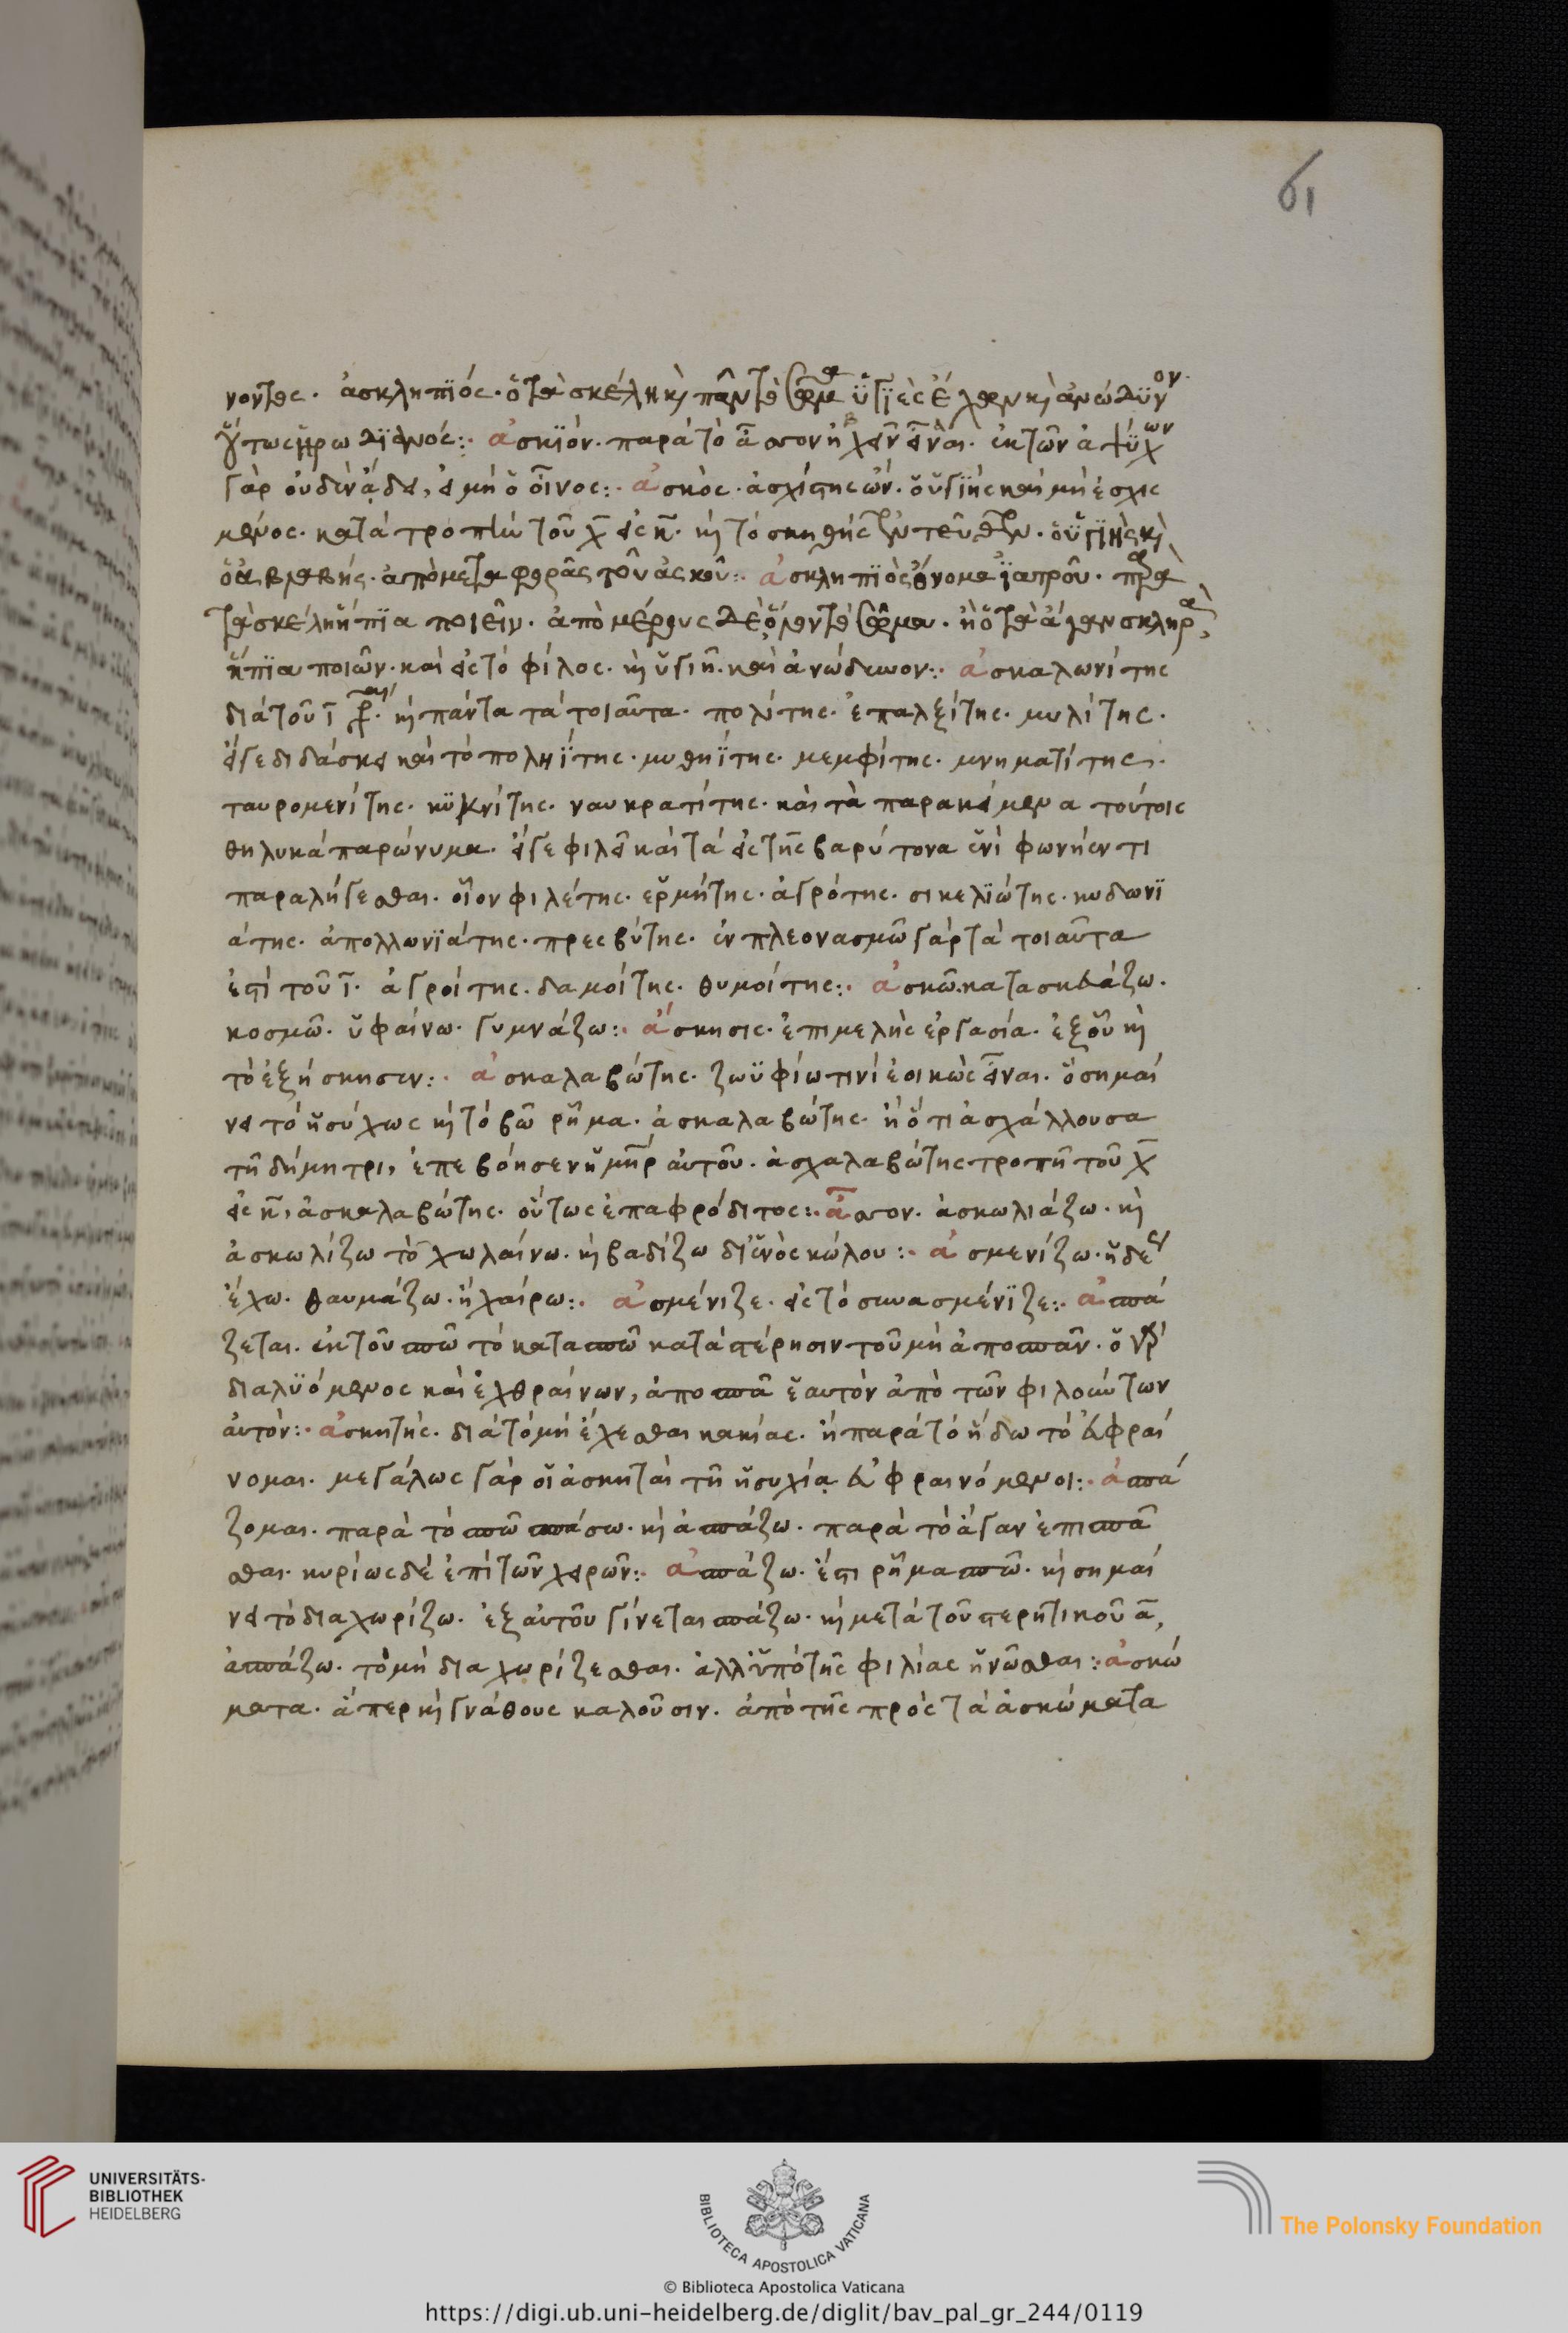 61
νοντες. ἀσκληπϊός. ὁ τὰ σκέλη κὶ πᾶν τὸ ὑγϊὲς ἔχων κὶ ἀνώδϋνον.
οὕτως ἡρωδϊανός:. ἀσκϊόν. παρὰ τὸ ἐκ τῶν ἀψύχων
γὰρ οὐδὲν ᾄδει, εἰ μὴ ὁ οἶνος:. ἀσκὸς. ἀσχίστης ὤν. ὁ ὑγϊὴς καὶ μὴ ἐσχισ
μένος. κατὰ τροπὴν τοῦ χ εἰς κ. κὶ τὸ ἀσκηθής ἐντεῦθεν. ὁ ὑγϊὴς κὶ
ὁ ἀβλαβής. ἀπὸ μεταφορᾶς τοῦ ἀσκοῦ:. ἀσκληπϊὸς ὄνομα ἰατροῦ. παρὰ
τὰ σκέλη ἤπϊα ποιεῖν. ἀπὸ μέρους δὲ ὅλον τὸ σῶμα. ἢ ὁ τὰ ἄγαν σκληρὰ,
ἤπϊα ποιῶν. καὶ εἰς τὸ φίλος. κὶ ὑγιῆ. καὶ ἀνώδυνον:. ἀσκαλωνίτης
διὰ τοῦ ι κὶ πάντα τὰ τοιαῦτα. πολίτης. ἐπαλξίτης. μυλίτης.
εἴγε διδάσκει καὶ τὸ πολιΐτης. μυθηΐτης. μεμφίτης. μνηματίτης.
ταυρομενίτης. κϋκνίτης. ναυκρατίτης. καὶ τὰ παρακείμενα τούτοις
θηλυκὰ παρώνυμα. εἴγε φιλεῖ καὶ τὰ εἰς της βαρύτονα ἑνὶ φωνήεντι
παραλήγεσθαι. οἷον φιλέτης. ἑρμήτης. ἀγρότης. σικελϊώτης. κυδωνϊ
άτης. ἀπολλωνϊάτης. πρεσβύτης. ἐν πλεονασμῶ γὰρ τὰ τοιαῦτα
ἐστὶ τοῦ ι. ἀγροίτης. δαμοίτης. θυμοίτης:. ἀσκῶ. κατασκευάζω.
κοσμῶ. ὑφαίνω. γυμνάζω:. ἄσκησις. ἐπιμελὴς ἐργασία. ἐξ οὗ κὶ
τὸ ἐξήσκησεν:. ἀσκαλαβώτης. ζωϋφίω τινὶ ἐοικὼς εἶναι. ὃ σημαί
νει τὸ ἡσύχως κὶ τὸ βῶ ρῆμα. ἀσκαλαβώτης. ἢ ὅτι ἀσχάλλουσα
τῆ δήμητρι, ἐπεβόησεν ἡ μηρ αὐτοῦ. ἀσχαλαβώτης τροπῆ τοῦ χ
εἰς κ, ἀσκαλαβώτης. οὕτως ἐπαφρόδιτος:. ἆσσον. ἀσκωλιάζω. κὶ
ἀσκωλίζω τὸ χωλαίνω. κὶ βαδίζω δι ἑνὸς κώλου:. ἀσμενίζω. ἡδέως
ἔχω. θαυμάζω. ἢ χαίρω:. ἀσμένιζε. εἰς τὸ συνασμένϊζε:. ἀσπά
ζεται. ἐκ τοῦ σπῶ τὸ κατασπῶ κατὰ στέρησιν τοῦ μὴ ἀποσπᾶν. ὁ γὰρ
διαλϋόμενος καὶ ἐχθραίνων, ἀποσπᾶ ἑαυτὸν ἀπὸ τῶν φιλούντων
αὐτὸν:. ἀσκητής. διὰ τὸ μὴ ἔχεσθαι κακίας. ἢ παρὰ τὸ ἥδω τὸ εὐφραί
νομαι. μεγάλως γὰρ οἱ ἀσκηταὶ τῆ ἡσυχίᾳ εὐφραινόμενοι:. ἀσπά
ζομαι. παρὰ τὸ σπῶ σπάσω. κὶ ἀσπάζω. παρὰ τὸ ἄγαν ἐπισπᾶ
σθαι. κυρίως δὲ ἐπὶ τῶν χειρῶν:. ἀσπάζω. ἔστι ρῆμα σπῶ. κὶ σημαί
νει τὸ διαχωρίζω. ἐξ αὐτοῦ γίνεται σπάζω. κὶ μετὰ τοῦ στερητικοῦ α,
ἀσπάζω. τὸ μὴ διαχωρίζεσθαι. ἀλλ ὑπὸ τῆς φιλίας ἡνῶσθαι:. ἀσκώ
ματα. ἅπερ κὶ γνάθους καλοῦσιν. ἀπὸ τῆς πρὸς τὰ ἀσκώματα
UNIVERSITÄTS-
BIBLIOTHEK
HEIDELBERG
BIBLIOTECA APOSTOLICA VATICANA
The Polonsky Foundation
© Biblioteca Apostolica Vaticana
https://digi.ub.uni-heidelberg.de/diglit/bav_pal_gr_244/0119